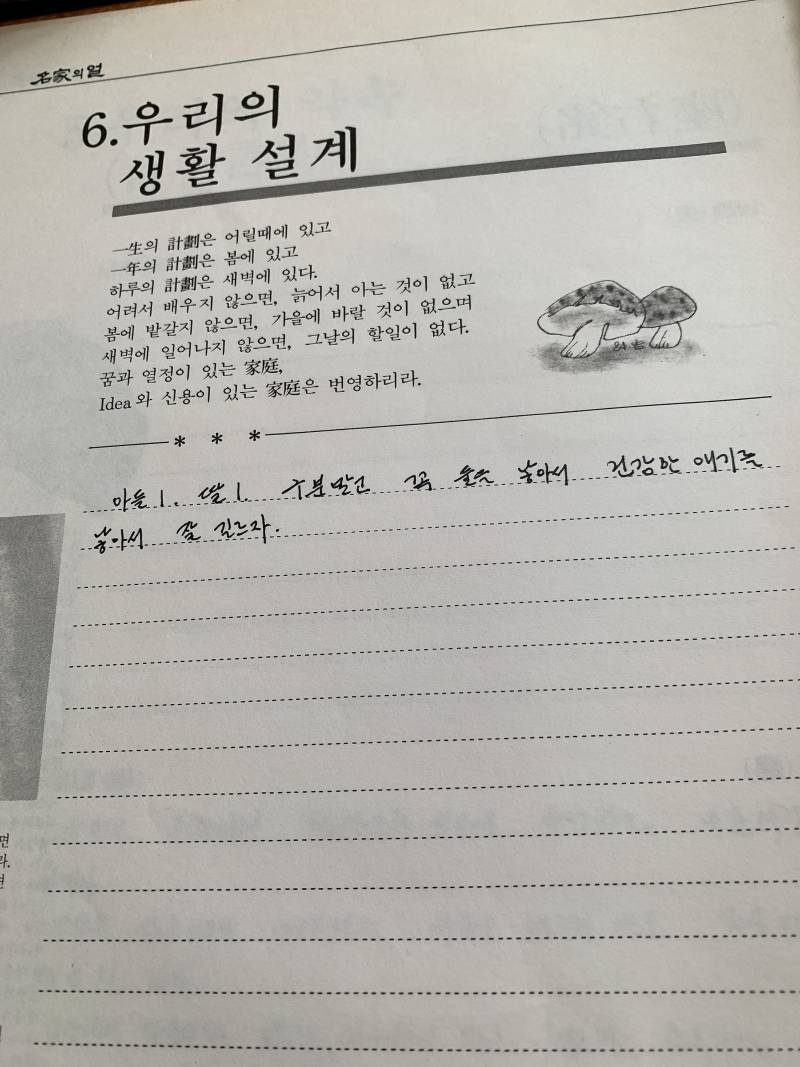 名家의 얼
6. 우리의
생활 설계
一生의 計劃은 어릴때에 있고
一年의 計劃은 봄에 있고
하루의 計劃은 새벽에 있다.
어려서 배우지 않으면, 늙어서 아는 것이 없고
봄에 밭갈지 않으면, 가을에 바랄 것이 없으며
새벽에 일어나지 않으면, 그날의 할일이 없다.
꿈과 열정이 있는 家庭,
Idea와 신용이 있는 家庭은 번영하리라.
* * *
아들 1. 딸 1. 구분말고 꼭 둘은 낳아서 건강한 애기를
낳아서 잘 기르자.
면
라.